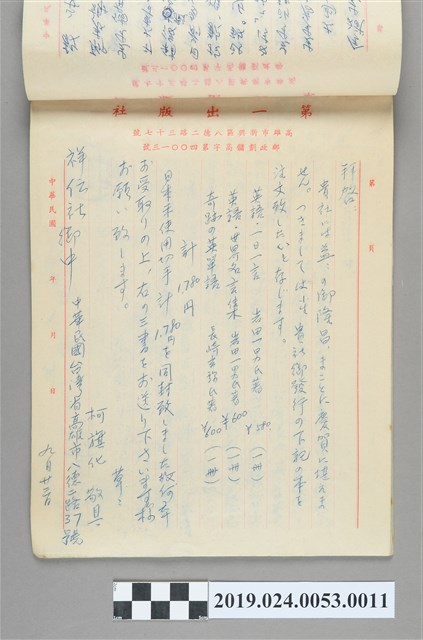 第一出版社
高雄市新興區八德二路三十七號
郵政劃撥高字第四〇〇一三號
第 頁
拝啓、
貴社いよ益々の御隆昌、まことに慶賀に堪えま
せん。つきましては 貴社御發行の下記の本を
注文致したいとなじます。
英語・一日一言 岩田一男氏著 (一冊) ¥380
英語・世界名言集 岩田一男氏著 (一冊) ¥600
奇跡の英単語 長崎玄弥氏著 (一冊) ¥800
計 1,780円
日本未使用切手計1,780円を同封致しました故何卒
お受取りの上、右の三書をお送り下さいます様
お願い致します。
草々
柯旗化 敬具
中華民國台湾省高雄市八德二路37號
九月廿二日
祥伝社御中
中華民國 年 月 日
2019.024.0053.0011